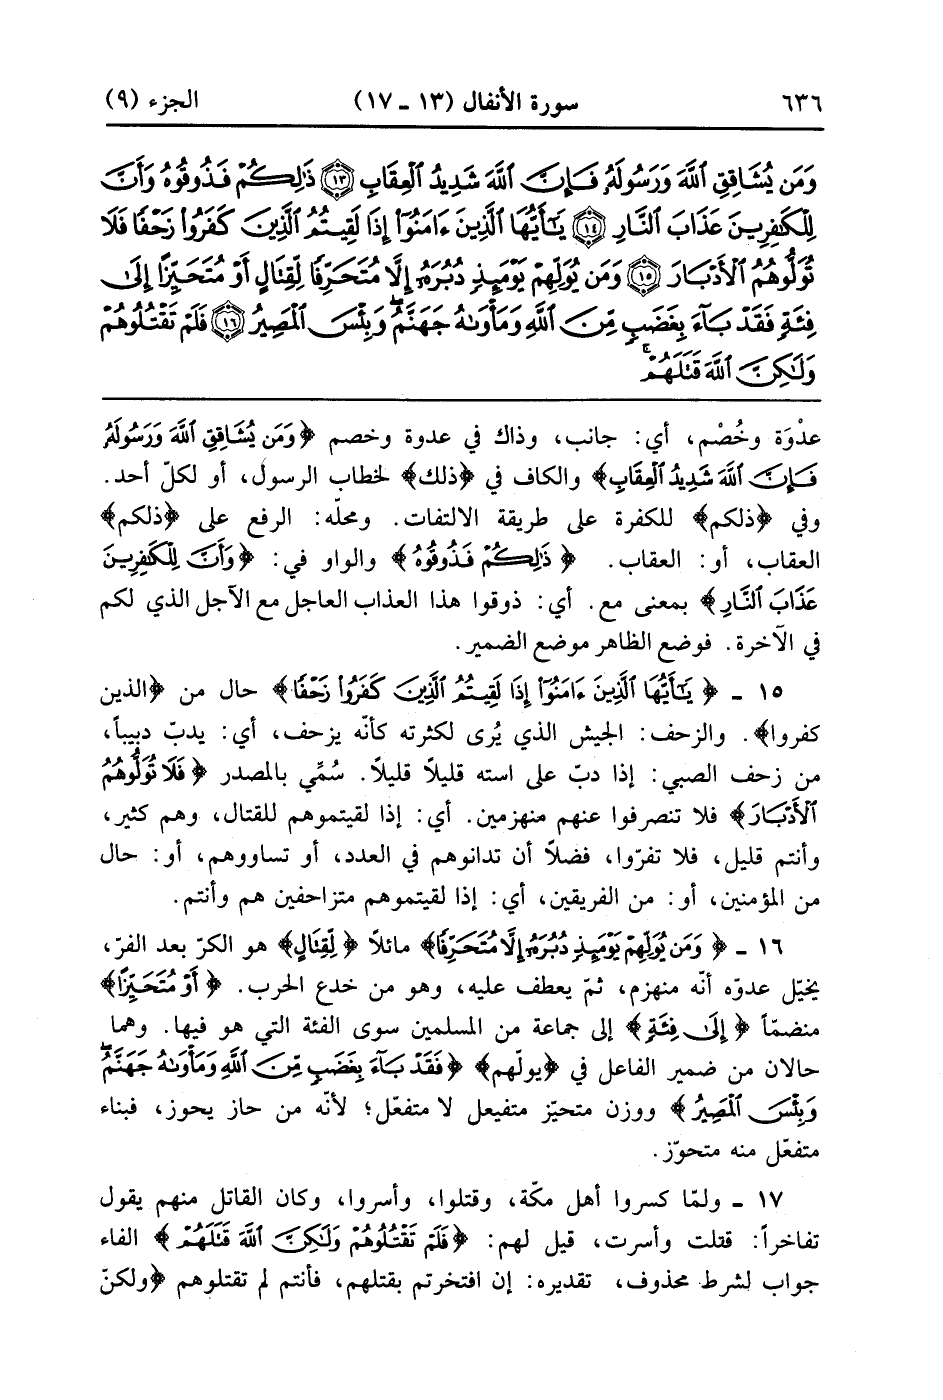 ٦٣٦ سورة الأنفال (١٣ ـ ١٧) الجزء (٩)
وَمَن يُشَاقِقِ ٱللَّهَ وَرَسُولَهُۥ فَإِنَّ ٱللَّهَ شَدِيدُ ٱلْعِقَابِ ۝١٣ ذَٰلِكُمْ فَذُوقُوهُ وَأَنَّ
لِلْكَٰفِرِينَ عَذَابَ ٱلنَّارِ ۝١٤ يَٰٓأَيُّهَا ٱلَّذِينَ ءَامَنُوٓا۟ إِذَا لَقِيتُمُ ٱلَّذِينَ كَفَرُوا۟ زَحْفًا فَلَا
تُوَلُّوهُمُ ٱلْأَدْبَارَ ۝١٥ وَمَن يُوَلِّهِمْ يَوْمَئِذٍ دُبُرَهُۥٓ إِلَّا مُتَحَرِّفًا لِّقِتَالٍ أَوْ مُتَحَيِّزًا إِلَىٰ
فِئَةٍ فَقَدْ بَآءَ بِغَضَبٍ مِّنَ ٱللَّهِ وَمَأْوَىٰهُ جَهَنَّمُ ۖ وَبِئْسَ ٱلْمَصِيرُ ۝١٦ فَلَمْ تَقْتُلُوهُمْ
وَلَٰكِنَّ ٱللَّهَ قَتَلَهُمْ ۚ
عدْوَة وخُصْم، أي: جانب، وذاك في عدوة وخصم ﴿وَمَن يُشَاقِقِ ٱللَّهَ وَرَسُولَهُۥ
فَإِنَّ ٱللَّهَ شَدِيدُ ٱلْعِقَابِ﴾ والكاف في ﴿ذلك﴾ لخطاب الرسول، أو لكلّ أحد.
وفي ﴿ذلكم﴾ للكفرة على طريقة الالتفات. ومحلّه: الرفع على ﴿ذلكم﴾
العقاب، أو: العقاب. ﴿ذَٰلِكُمْ فَذُوقُوهُ﴾ والواو في: ﴿وَأَنَّ لِلْكَٰفِرِينَ
عَذَابَ ٱلنَّارِ﴾ بمعنى مع. أي: ذوقوا هذا العذاب العاجل مع الآجل الذي لكم
في الآخرة. فوضع الظاهر موضع الضمير.
١٥ ـ ﴿يَٰٓأَيُّهَا ٱلَّذِينَ ءَامَنُوٓا۟ إِذَا لَقِيتُمُ ٱلَّذِينَ كَفَرُوا۟ زَحْفًا﴾ حال من ﴿الذين
كفروا﴾. والزحف: الجيش الذي يُرى لكثرته كأنّه يزحف، أي: يدبّ دبيباً،
من زحف الصبي: إذا دبّ على استه قليلاً قليلاً. سُمِّي بالمصدر ﴿فَلَا تُوَلُّوهُمُ
ٱلْأَدْبَارَ﴾ فلا تنصرفوا عنهم منهزمين. أي: إذا لقيتموهم للقتال، وهم كثير،
وأنتم قليل، فلا تفرّوا، فضلاً أن تدانوهم في العدد، أو تساووهم، أو: حال
من المؤمنين، أو: من الفريقين، أي: إذا لقيتموهم متزاحفين هم وأنتم.
١٦ ـ ﴿وَمَن يُوَلِّهِمْ يَوْمَئِذٍ دُبُرَهُۥٓ إِلَّا مُتَحَرِّفًا﴾ مائلاً ﴿لِّقِتَالٍ﴾ هو الكرّ بعد الفرّ،
يخيّل عدوّه أنّه منهزم، ثمّ يعطف عليه، وهو من خدع الحرب. ﴿أَوْ مُتَحَيِّزًا﴾
منضمّاً ﴿إِلَىٰ فِئَةٍ﴾ إلى جماعة من المسلمين سوى الفئة التي هو فيها. وهما
حالان من ضمير الفاعل في ﴿يولّهم﴾ ﴿فَقَدْ بَآءَ بِغَضَبٍ مِّنَ ٱللَّهِ وَمَأْوَىٰهُ جَهَنَّمُ ۖ
وَبِئْسَ ٱلْمَصِيرُ﴾ ووزن متحيّز متفيعل لا متفعّل؛ لأنّه من حاز يحوز، فبناء
متفعّل منه متحوّز.
١٧ ـ ولمّا كسروا أهل مكّة، وقتلوا، وأسروا، وكان القاتل منهم يقول
تفاخراً: قتلت وأسرت، قيل لهم: ﴿فَلَمْ تَقْتُلُوهُمْ وَلَٰكِنَّ ٱللَّهَ قَتَلَهُمْ﴾ الفاء
جواب لشرط محذوف، تقديره: إن افتخرتم بقتلهم، فأنتم لم تقتلوهم ﴿ولكنّ